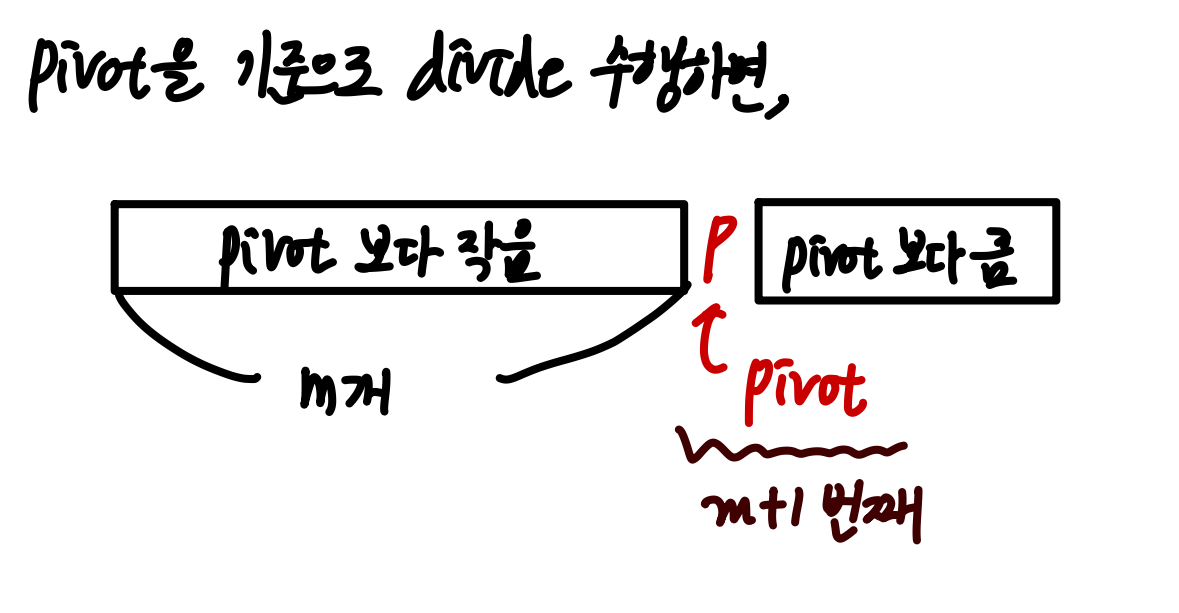 pivot을 기준으로 divide 수행하면,
pivot 보다 작음
P
pivot 보다 큼
m개
pivot
m+1 번째